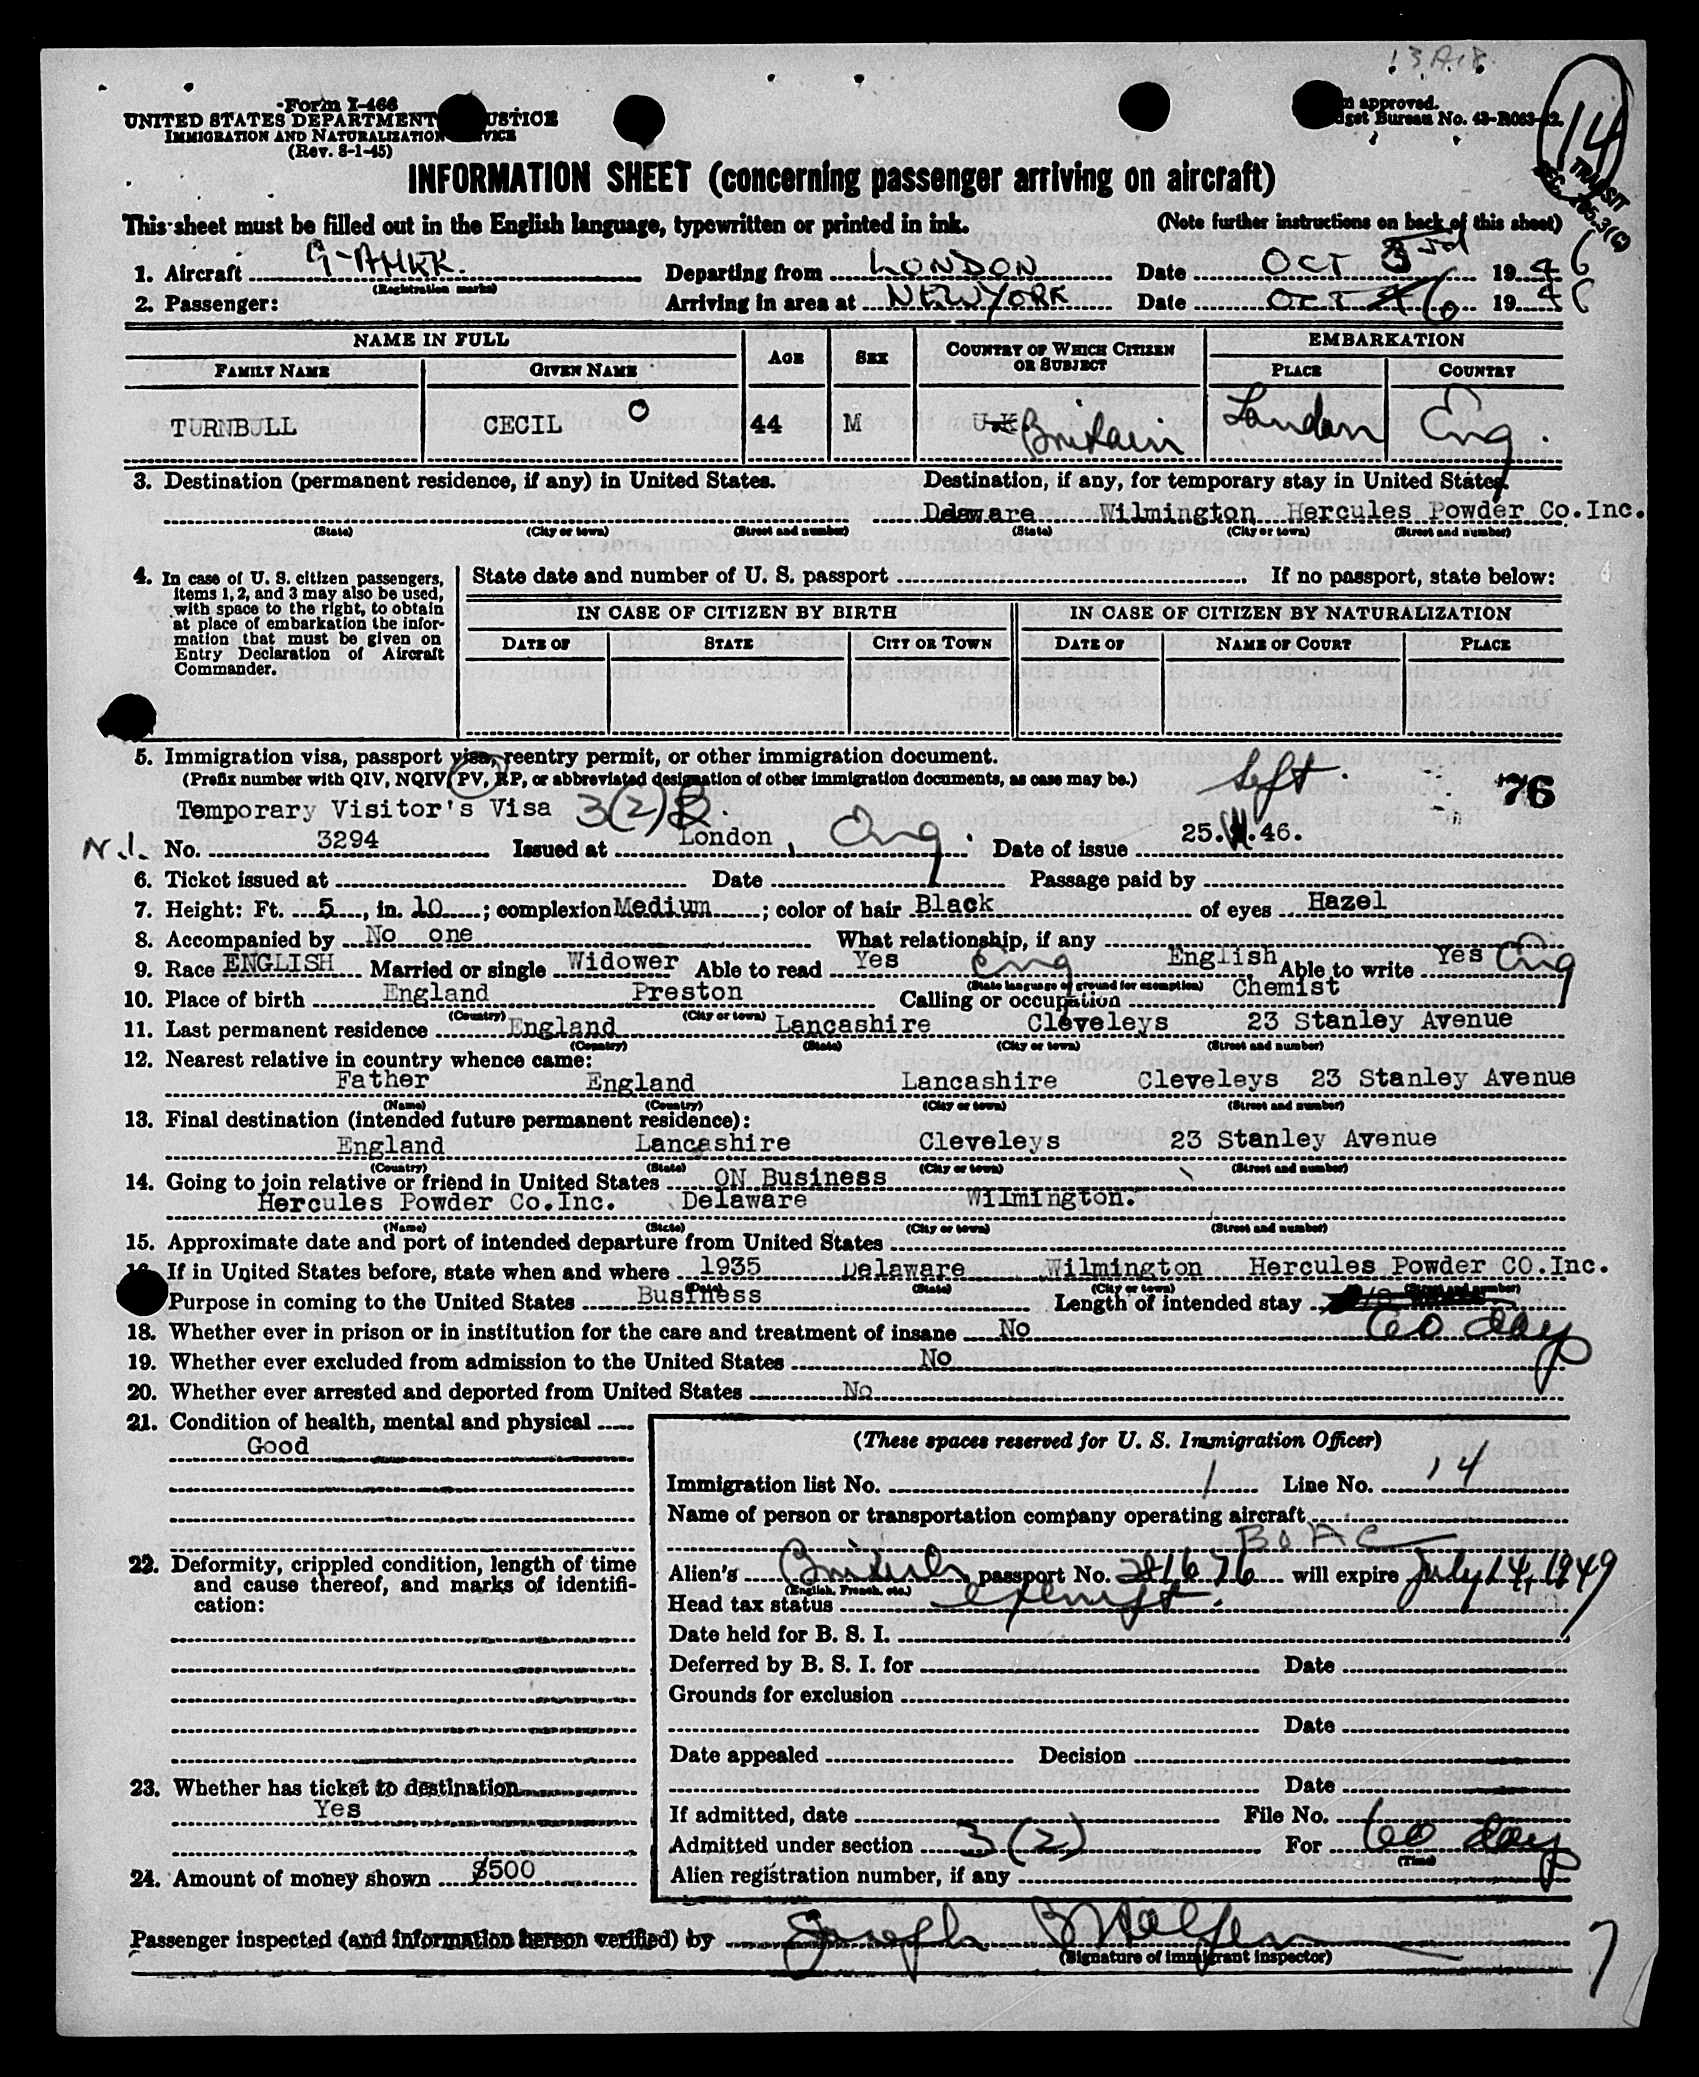 13 A.18.
Form I-466
UNITED STATES DEPARTMENT JUSTICE
IMMIGRATION AND NATURALIZATION SERVICE
(Rev. 8-1-45)
approved.
Budget Bureau No. 43-R063-42.
14
TRANSIT
SEC. 3(C)
INFORMATION SHEET (concerning passenger arriving on aircraft)
This sheet must be filled out in the English language, typewritten or printed in ink. (Note further instructions on back of this sheet)
1. Aircraft G-AHKK. Departing from LONDON Date OCT 3rd 1946
(Registration marks)
2. Passenger: Arriving in area at NEW YORK Date OCT 6 1946
NAME IN FULL AGE SEX COUNTRY OF WHICH CITIZEN OR SUBJECT EMBARKATION
FAMILY NAME GIVEN NAME PLACE COUNTRY
TURNBULL CECIL O 44 M U.K Britain London Eng.
3. Destination (permanent residence, if any) in United States. Destination, if any, for temporary stay in United States.
Delaware Wilmington Hercules Powder Co.Inc.
(State) (City or town) (Street and number) (State) (City or town) (Street and number)
4. In case of U. S. citizen passengers, items 1, 2, and 3 may also be used, with space to the right, to obtain at place of embarkation the information that must be given on Entry Declaration of Aircraft Commander.
State date and number of U. S. passport If no passport, state below:
IN CASE OF CITIZEN BY BIRTH IN CASE OF CITIZEN BY NATURALIZATION
DATE OF STATE CITY OR TOWN DATE OF NAME OF COURT PLACE
5. Immigration visa, passport visa, reentry permit, or other immigration document.
(Prefix number with QIV, NQIV, PV, RP, or abbreviated designation of other immigration documents, as case may be.) 76
Temporary Visitor's Visa 3(2)
N.I. No. 3294 Issued at London, Eng. Date of issue 25. .46. Sept.
6. Ticket issued at Date Passage paid by
7. Height: Ft. 5, in. 10; complexion Medium; color of hair Black of eyes Hazel
8. Accompanied by No one What relationship, if any
9. Race ENGLISH Married or single Widower Able to read Yes Eng English Able to write Yes Eng
(State language or ground for exemption)
10. Place of birth England Preston Calling or occupation Chemist
(Country) (City or town)
11. Last permanent residence England Lancashire Cleveleys 23 Stanley Avenue
(Country) (State) (City or town) (Street and number)
12. Nearest relative in country whence came:
Father England Lancashire Cleveleys 23 Stanley Avenue
(Name) (Country) (City or town) (Street and number)
13. Final destination (intended future permanent residence):
England Lancashire Cleveleys 23 Stanley Avenue
(Country) (State) (City or town) (Street and number)
14. Going to join relative or friend in United States ON Business
Hercules Powder Co.Inc. Delaware Wilmington.
(Name) (State) (City or town) (Street and number)
15. Approximate date and port of intended departure from United States
16. If in United States before, state when and where 1935 Delaware Wilmington Hercules Powder CO.Inc.
(Date) (State) (City or town) (Street and number)
Purpose in coming to the United States Business Length of intended stay 60 days
18. Whether ever in prison or in institution for the care and treatment of insane No
19. Whether ever excluded from admission to the United States No
20. Whether ever arrested and deported from United States No
21. Condition of health, mental and physical
Good
22. Deformity, crippled condition, length of time and cause thereof, and marks of identification:
23. Whether has ticket to destination
Yes
24. Amount of money shown $500
(These spaces reserved for U. S. Immigration Officer)
Immigration list No. 1 Line No. 14
Name of person or transportation company operating aircraft
BOAC
Alien's British passport No. 281676 will expire July 14, 1949
(English, French, etc.)
Head tax status exempt.
Date held for B. S. I.
Deferred by B. S. I. for Date
Grounds for exclusion
Date
Date appealed Decision
Date
If admitted, date File No.
Admitted under section 3(2) For 60 days
(Time)
Alien registration number, if any
Passenger inspected (and information hereon verified) by Joseph
(Signature of immigrant inspector)
7